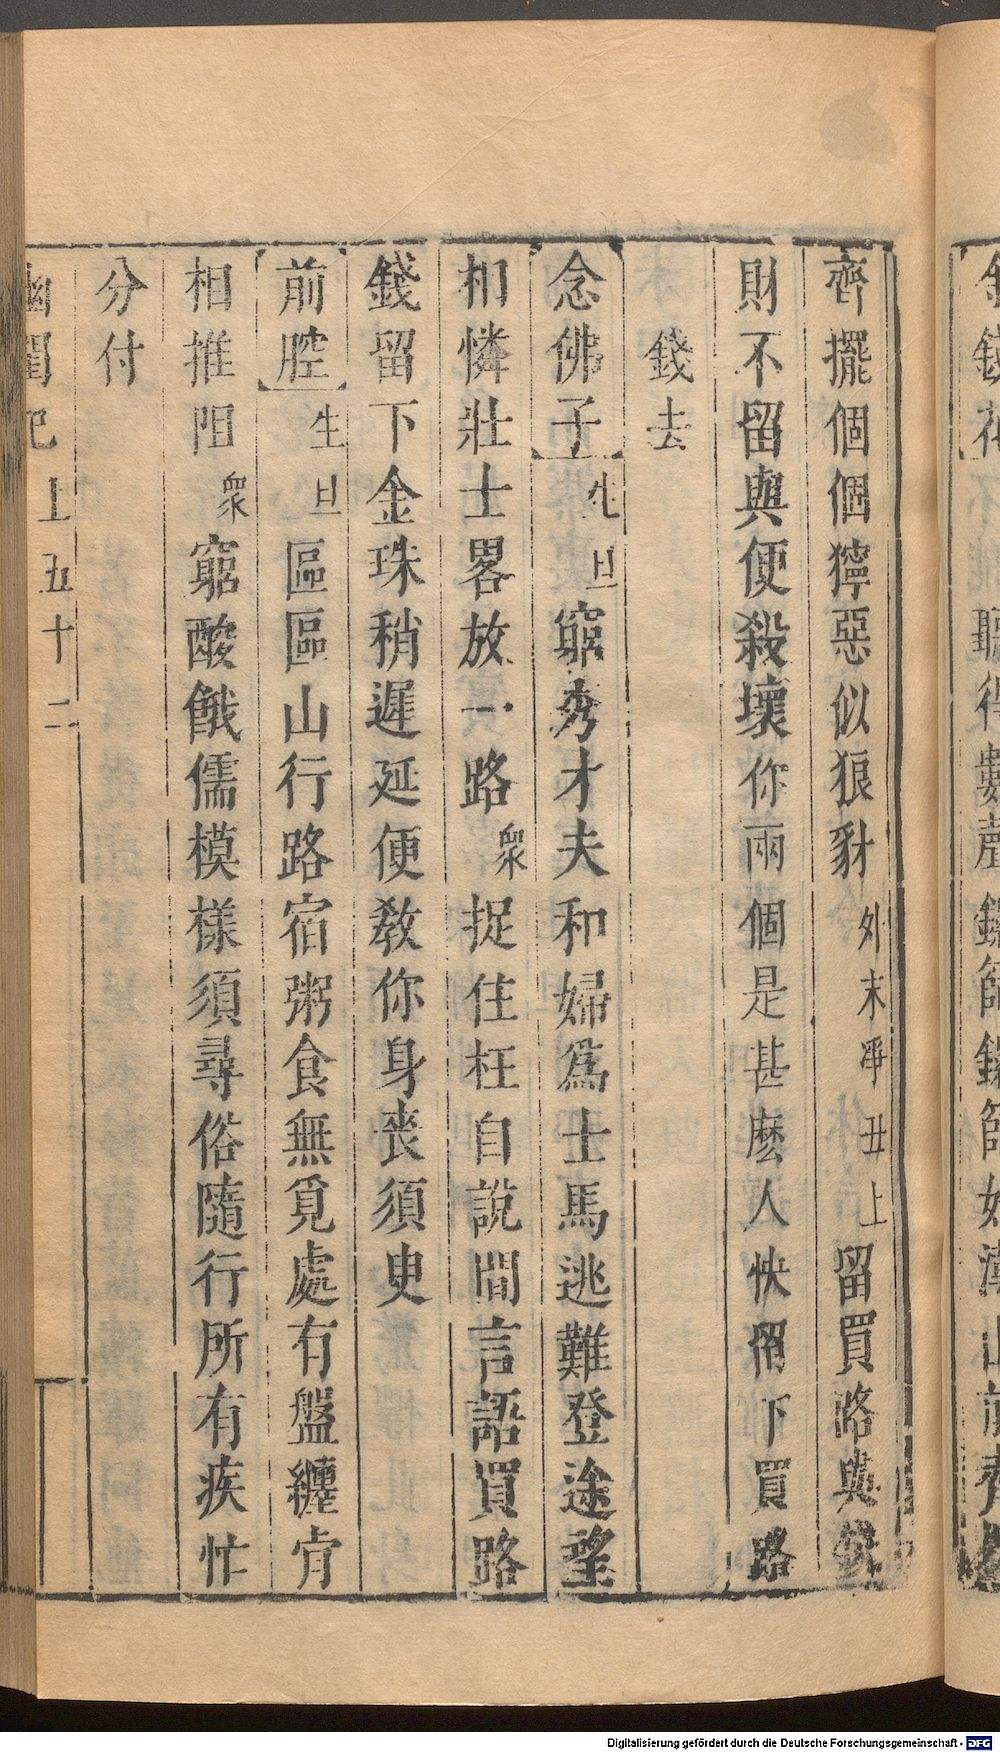 聽得數聲鑼篩鑼篩
齊擺個個獰惡似狼豺外末淨丑上留買路與錢
財不留與便殺壞你兩個是甚麽人快留下買路
錢去
念佛子生旦窮秀才夫和婦爲士馬逃難登途望
相憐壯士畧放一路衆捉住枉自說閒言語買路
錢留下金珠稍遲延便教你身喪須臾
前腔生旦區區山行路宿粥食無覓處有盤纏肯
相推阻衆窮酸餓儒模樣須尋俗隨行所有疾忙
分付
幽閨記上五十二
Digitalisierung gefördert durch die Deutsche Forschungsgemeinschaft - DFG